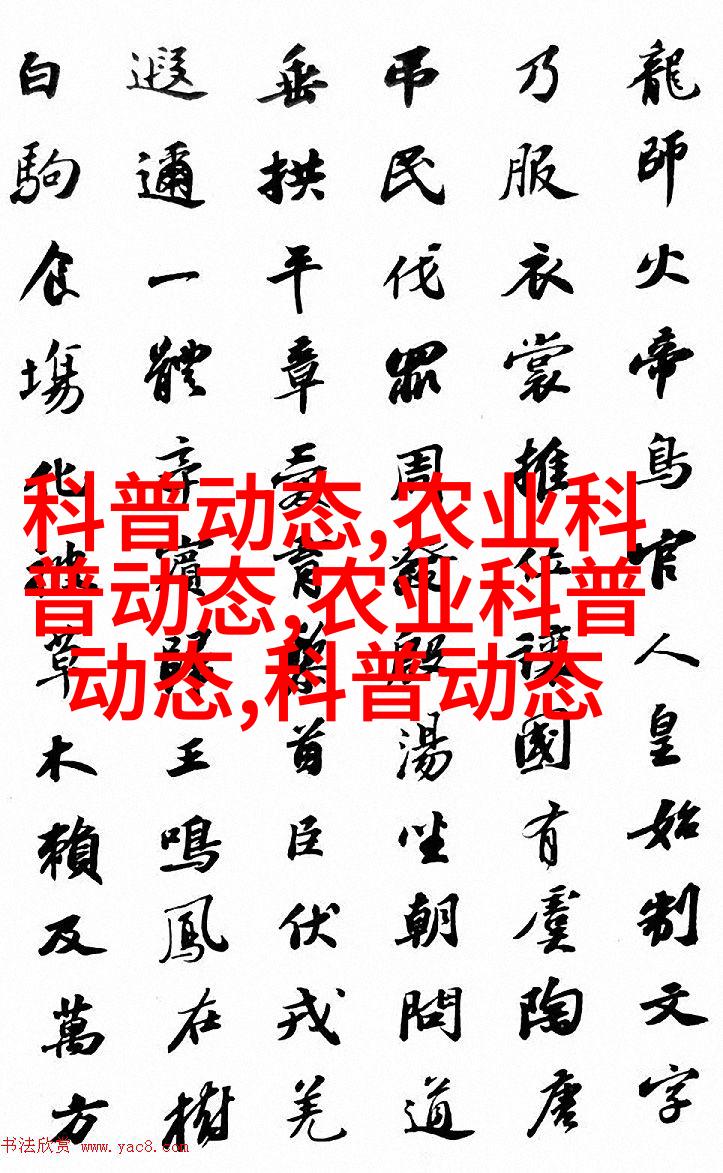 龍師火帝鳥官人皇始制文字
乃服衣裳推位讓國有虞陶唐
吊民伐罪周發殷湯坐朝問道
垂拱平章愛育黎首臣伏戎羌
遐邇一體率賓歸王鳴鳳在樹
白駒食場化被草木賴及萬方
科普动态,农业科
普动态,农业科普
动态,科普动态
书法欣赏 www.yac8.com